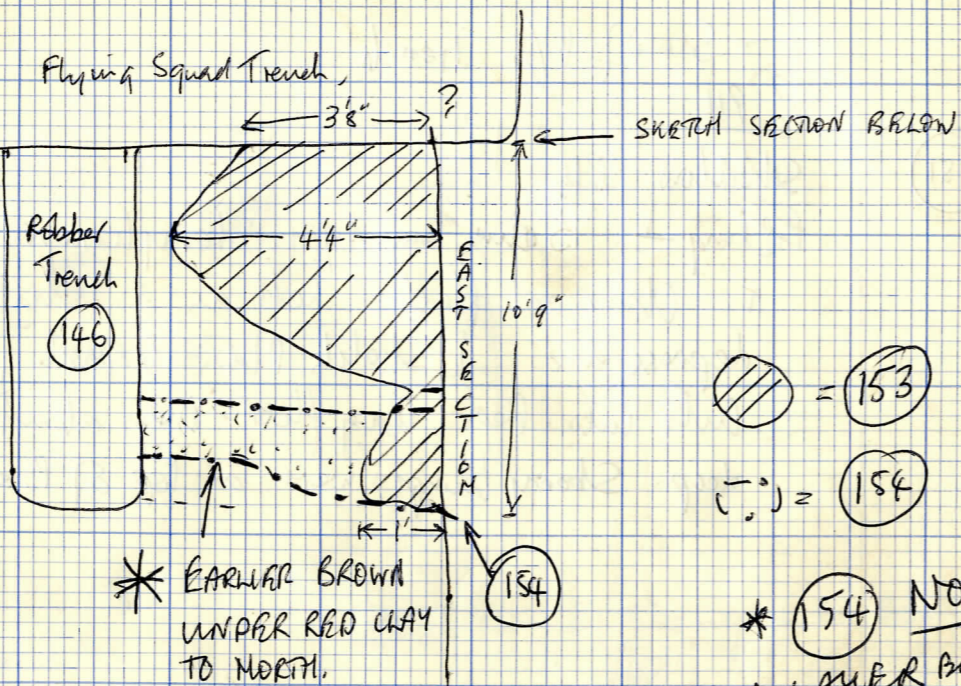 Flying Squad Trench,
3'8"
?
SKETCH SECTION BELOW
Robber
Trench
146
4'4"
EAST SECTION
10'9"
= 153
= 154
1'
154
* EARLIER BROWN
UNDER RED CLAY
TO NORTH.
* 154